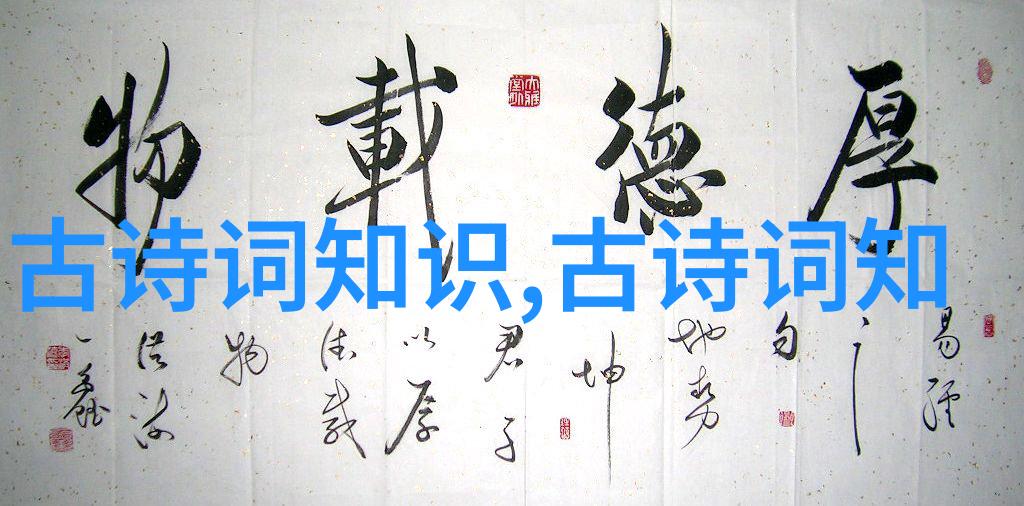 厚德載物
古诗词知识,古诗词知
易经
之
句
地势
坤
君子
以厚
德载
物